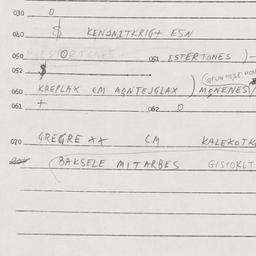 030 O
040 $ KENDNITKRIGT ESN
050 O 051 ESTERTONES )-
052 $
060 KREPLAX CM MONTEJGLAX ) MONENES
061 + 062 O
070 GREGRE XX CM KALEKOTK
BAKSELE MITARBES GISTOKLT